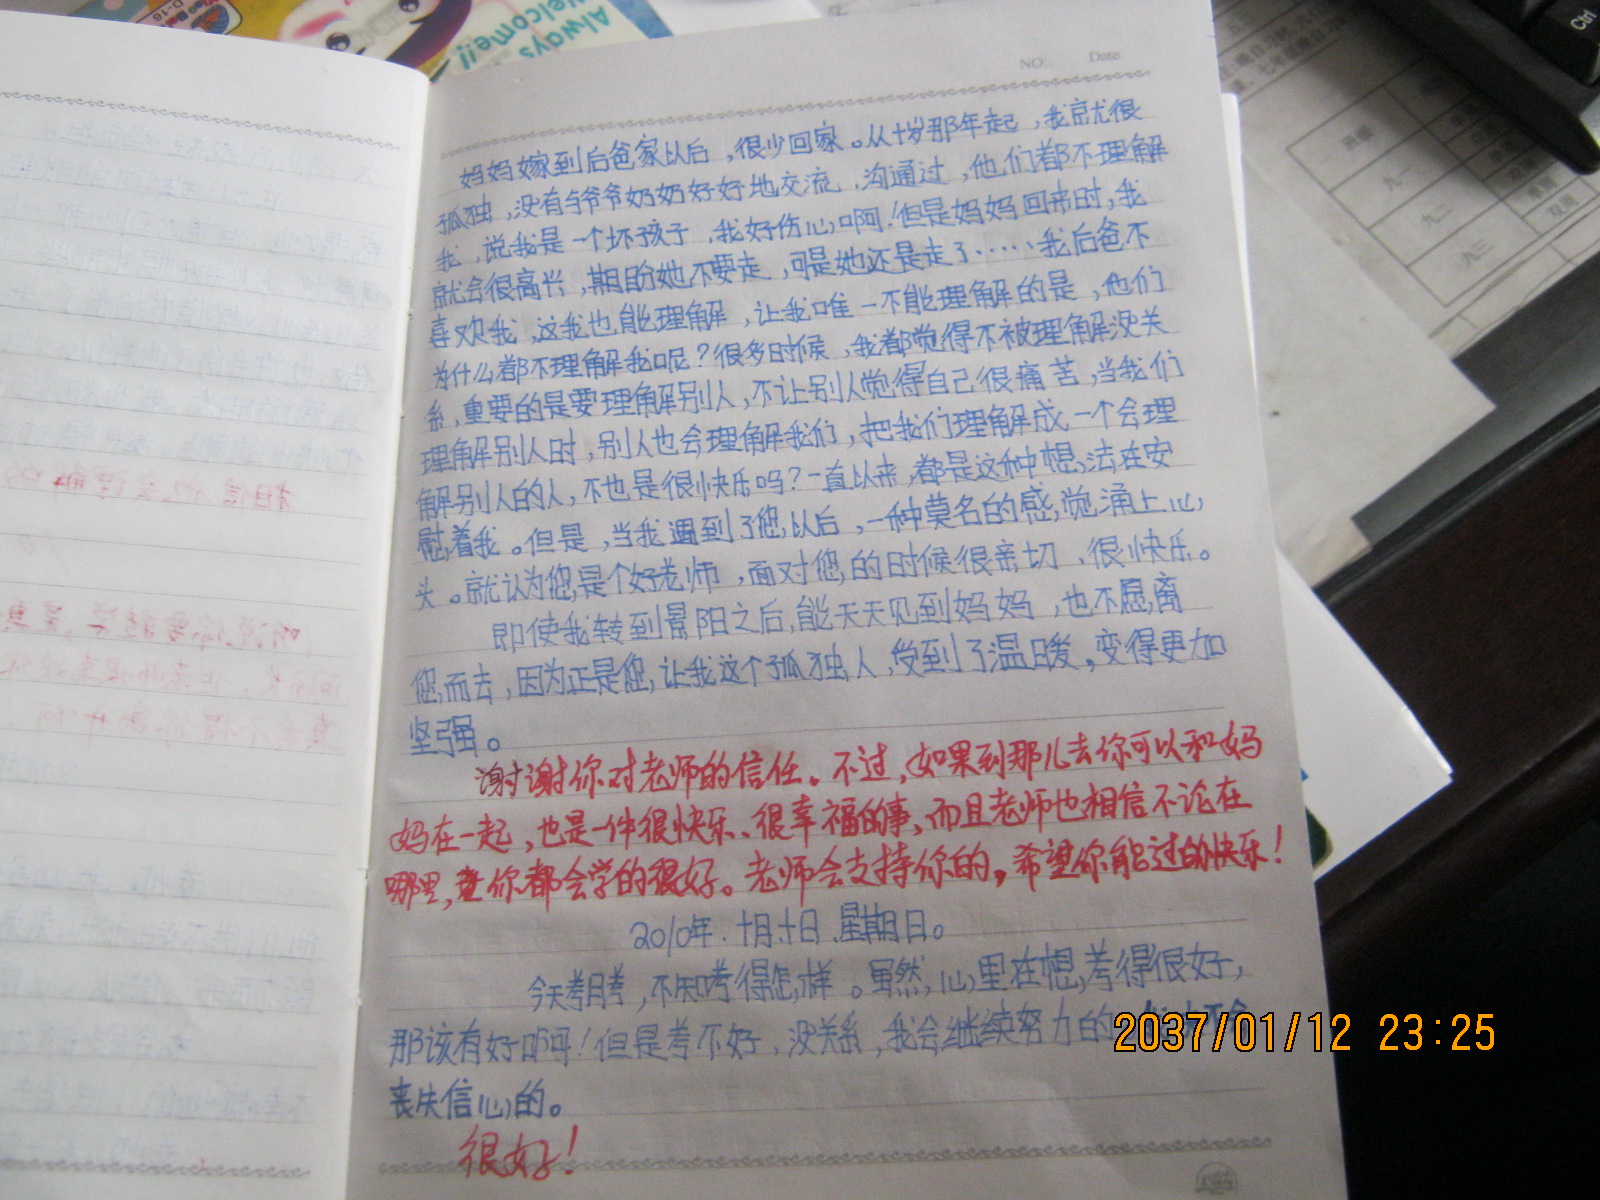 Always
Welcome!!
D-16
NO:
Date
Ctrl
班级
九一
九二
九三
双周
单周
双周
妈妈嫁到后爸家以后，很少回家。从十岁那年起，我就很
孤独，没有与爷爷奶奶好好地交流，沟通过，他们都不理解
我，说我是一个坏孩子，我好伤心啊！但是妈妈回来时，我
就会很高兴，期盼她不要走，可是她还是走了……我后爸不
喜欢我，这我也能理解，让我唯一不能理解的是，他们
为什么都不理解我呢？很多时候，我都觉得不被理解没关
系，重要的是要理解别人，不让别人觉得自己很痛苦，当我们
理解别人时，别人也会理解我们，把我们理解成一个会理
解别人的人，不也是很快乐吗？一直以来，都是这种想法在安
慰着我。但是，当我遇到了您以后，一种莫名的感觉涌上心
头。就认为您是个好老师，面对您的时候很亲切、很快乐。
即使我转到景阳之后，能天天见到妈妈，也不愿离
您而去，因为正是您，让我这个孤独人，受到了温暖，变得更加
坚强。
谢谢你对老师的信任。不过，如果到那儿去你可以和妈
妈在一起，也是一件很快乐、很幸福的事，而且老师也相信不论在
哪里，你都会学的很好。老师会支持你的，希望你能过的快乐！
2010年.十月.十日.星期日。
今天考月考，不知考得怎样。虽然，心里在想，考得很好，
那该有好啊！但是考不好，没关系，我会继续努力的
丧失信心的。
很好！
2037/01/12 23:25